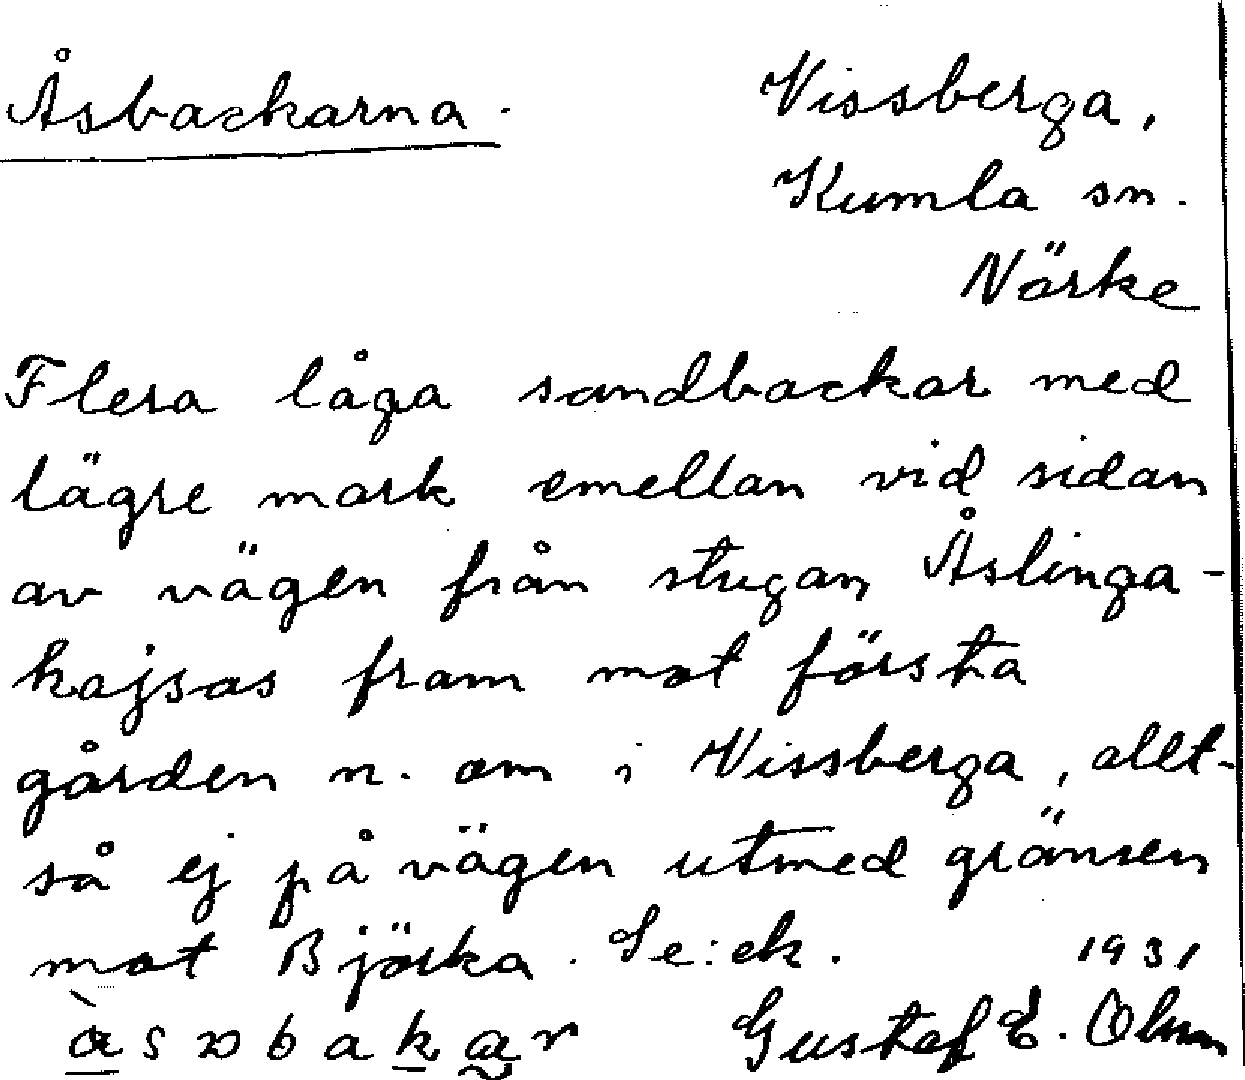 Åsbackarna.
Vissberga,
Kumla sn.
Närke
Flera låga sandbackar med
lägre mark emellan vid sidan
av vägen från stugan Åslinga-
kajsas fram mot första
gården n. om i Vissberga, allt-
så ej på vägen utmed gränsen
mot Björka. Se: ek. 1931
Gustaf E. Olson